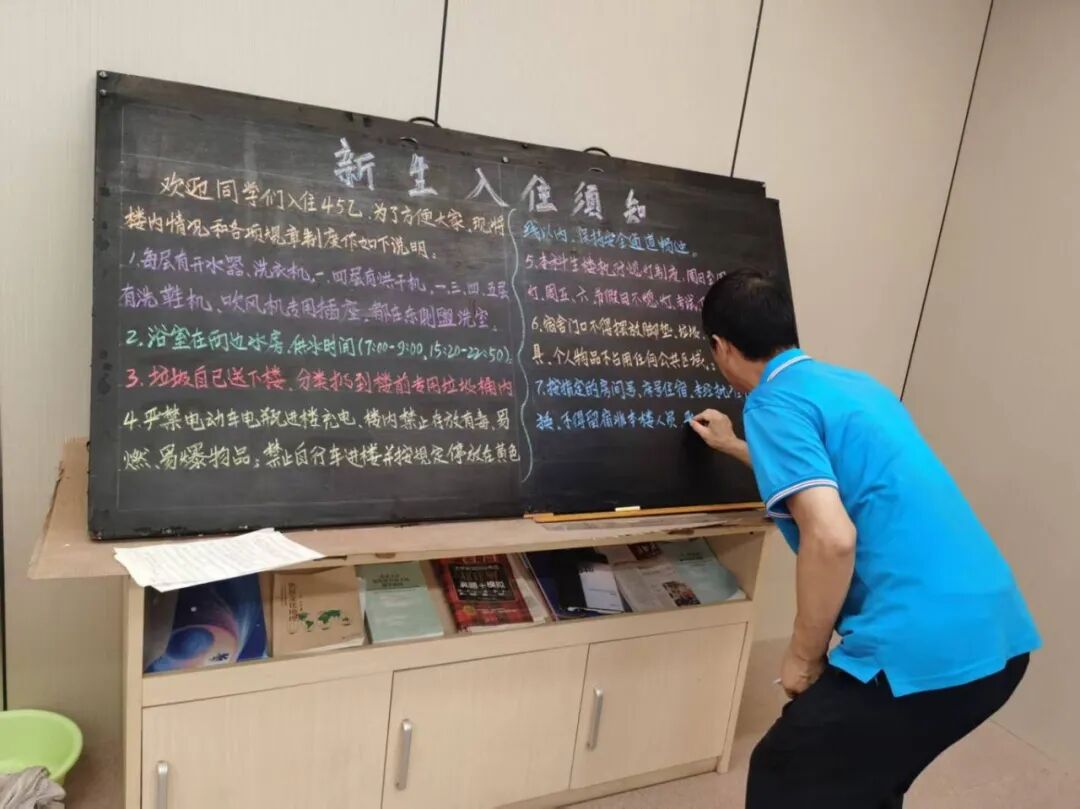 新生入住须知
欢迎同学们入住45乙，为了方便大家，现将
楼内情况和各项规章制度作如下说明。
1.每层有开水器、洗衣机，一、四层有烘干机，一、三、四、五层
有洗鞋机、吹风机专用插座，都在东侧盥洗室。
2.浴室在两边水房，供水时间(7:00-9:00,15:20-22:50)。
3.垃圾自己送下楼，分类扔到楼前专用垃圾桶内
4.严禁电动车电瓶进楼充电、楼内禁止存放有毒、易
燃、易爆物品；禁止自行车进楼并按规定停放在黄色
线以内，保持安全通道畅通。
5.本科生楼执行熄灯制度，周日至周
灯，周五、六、节假日不熄灯，考试
6.宿舍门口不得摆放脚垫、垃圾
具，个人物品不占用任何公共区域
7.按指定的房间号、床号住宿，未经批
换，不得留宿非本楼人员
真题+模拟